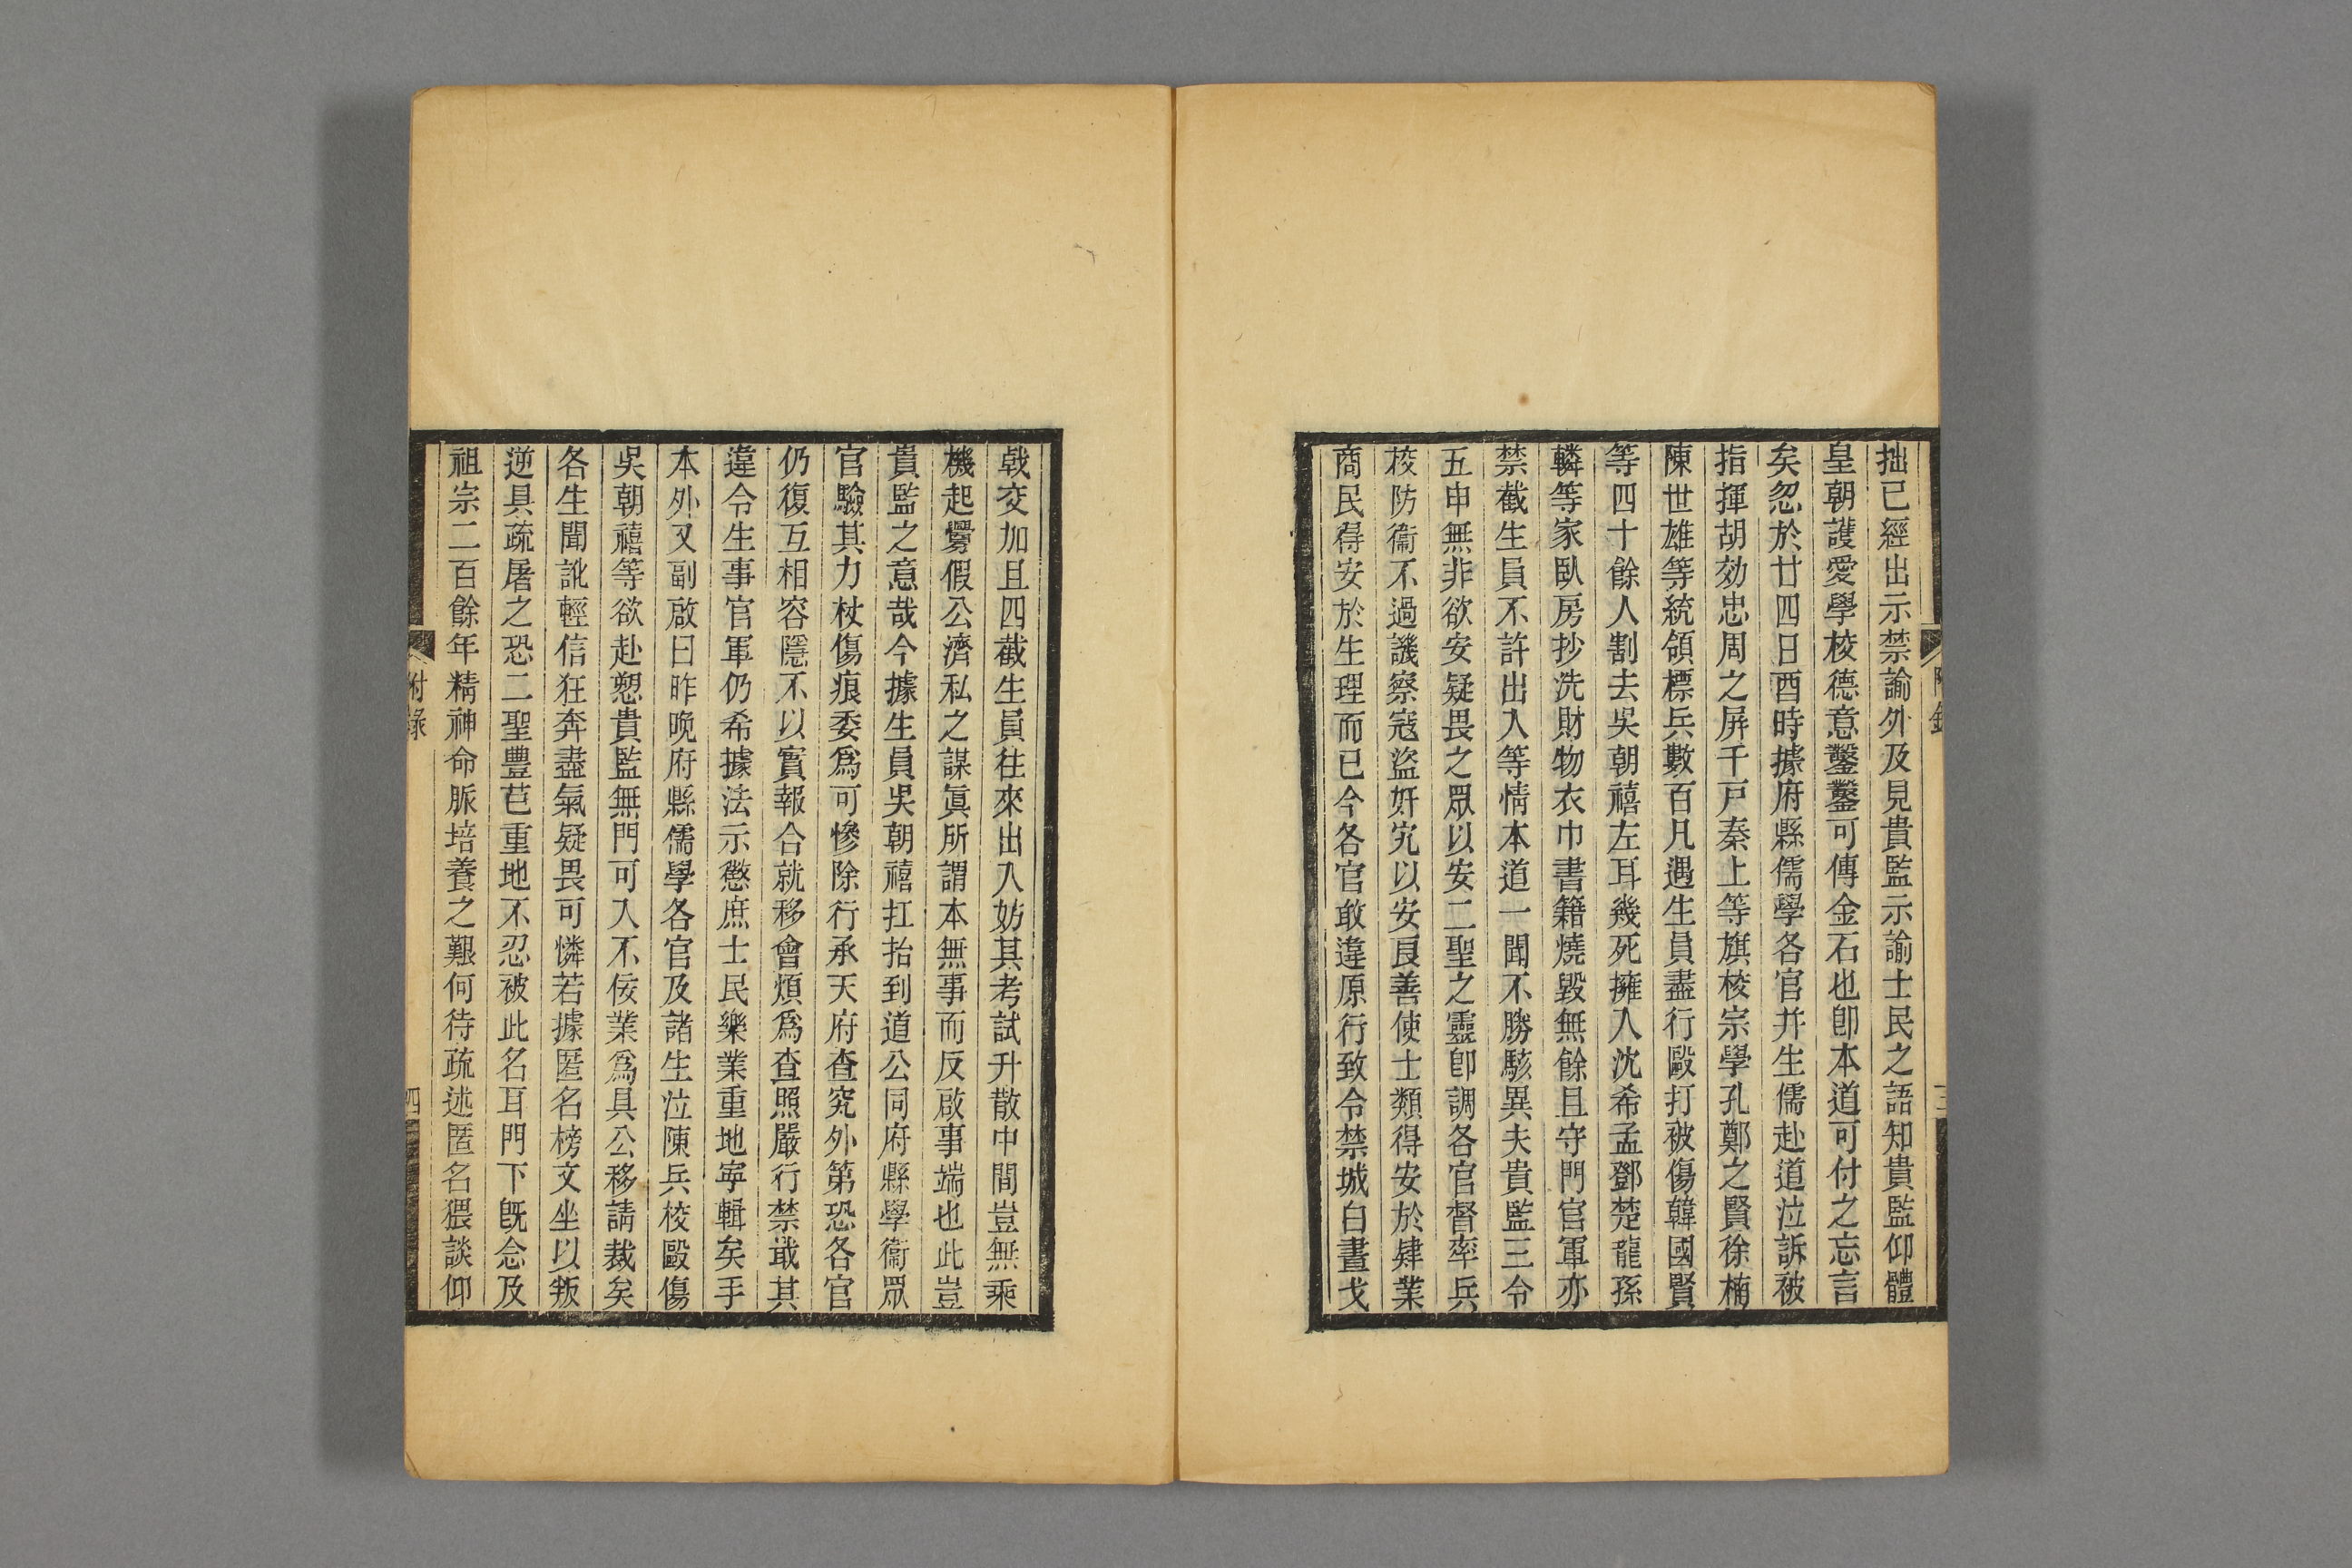 拙已經出示禁諭外及見貴監示諭士民之語知貴監仰體
皇朝護愛學校德意鑿鑿可傳金石也卽本道可付之忘言
矣忽於廿四日酉時據府縣儒學各官并生儒赴道泣訴被
指揮胡効忠周之屏千戸秦上等旗校宗學孔鄭之賢徐楠
陳世雄等統領標兵數百凡遇生員盡行毆打被傷韓國賢
等四十餘人割去吳朝禧左耳幾死擁入沈希孟鄧楚龍孫
轔等家臥房抄洗財物衣巾書籍燒毀無餘且守門官軍亦
禁截生員不許出入等情本道一聞不勝駭異夫貴監三令
五申無非欲安疑畏之眾以安二聖之靈卽調各官督率兵
校防衞不過譏察寇盜奸宄以安良善使士類得安於肄業
商民得安於生理而已今各官敢違原行致令禁城白晝戈
戟交加且四截生員往來出入妨其考試升散中間豈無乘
機起釁假公濟私之謀眞所謂本無事而反啟事端也此豈
貴監之意哉今據生員吳朝禧扛抬到道公同府縣學衞眾
官驗其力杖傷痕委爲可慘除行承天府查究外第恐各官
仍復互相容隱不以實報合就移會煩爲查照嚴行禁戢其
違令生事官軍仍希據法示懲庶士民樂業重地寕輯矣手
本外又副啟曰昨晚府縣儒學各官及諸生泣陳兵校毆傷
吳朝禧等欲赴愬貴監無門可入不佞業爲具公移請裁矣
各生聞訛輕信狂奔盡氣疑畏可憐若據匿名榜文坐以叛
逆具疏屠之恐二聖豐芑重地不忍被此名耳門下旣念及
祖宗二百餘年精神命脈培養之艱何待疏述匿名猥談仰
附錄
四